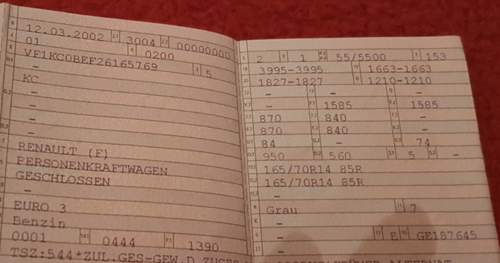 12.03.2002 3004 00000000
01 0200
VF1KC0BEF26165769 5
–
KC
–
–
–
RENAULT (F)
PERSONENKRAFTWAGEN
GESCHLOSSEN
–
EURO 3
Benzin
0001 0444 1390
TSZ:544*ZUL.GES-GEW.D.
2 1 55/5500 153
3995-3995 1663-1663
1827-1827 1210-1210
– – –
– 1585 1585
870 840 –
870 840 –
84 – 74
950 560 5 –
165/70R14 85R
165/70R14 85R
–
Grau 7
–
– E GE187645